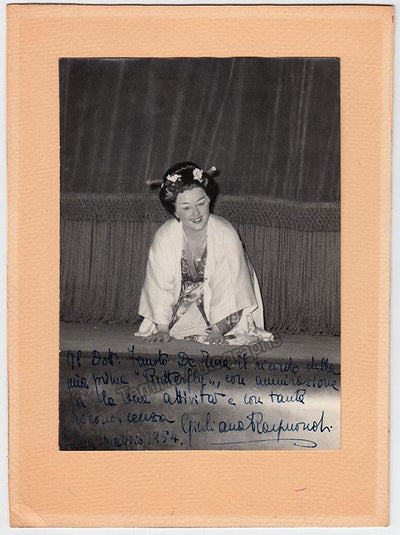 Al Dott. Fausto De Tura il ricordo della
mia prima "Butterfly", con ammirazione
per la sua attività e con tanta
riconoscenza Giuliana Raymondi
maggio 1954.